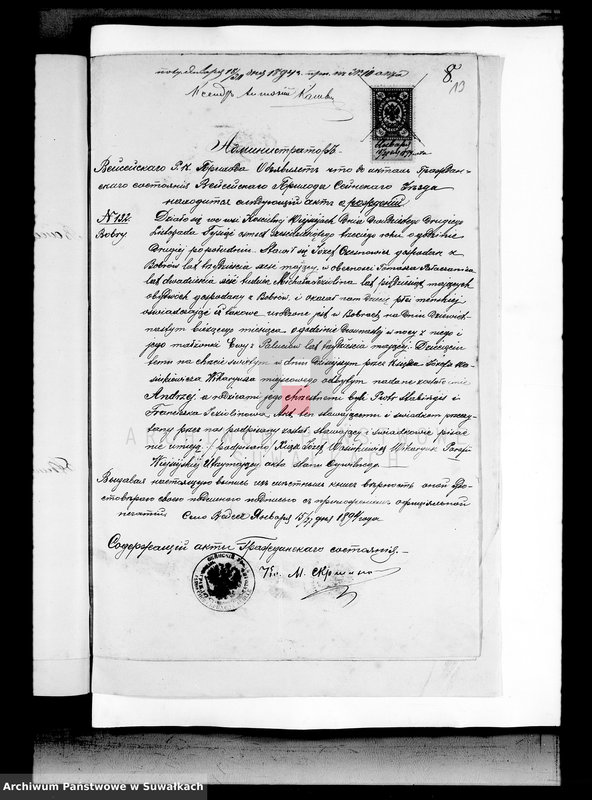 8
13
Администраторъ
Вейсейскаго Р. К. Прихода Объявляетъ что въ актахъ Граждан-
скаго состоянія Вейсейскаго Прихода Сейнскаго Уезда
находится следующій актъ о рожденіи
№ 132 Działo się we wsi Kościelnej Wiejsiejach Dnia Dwudziestego Drugiego
Bobry Listopada Tysiąc osmset sześćdziesiątego trzeciego roku o godzinie
Drugiej popołudniu. Stawił się Józef gospodarz z
Bobrów lat trzydzieście sześć mający, w obecności Tomasza
lat dwadzieścia sześć tudzież Michała lat pięćdziesiąt mających
obydwóch gospodarzy z Bobrów, i okazał nam Dziecie płci męzkiej
oświadczając iż takowe urodzone jest w Bobrach na Dniu Dziewięt-
nastym bieżącego miesiąca o godzinie dwunastej w nocy z niego i
jego małżonki Ewy z lat trzydzieścia mającej. Dziecięciu
temu na chrzcie świętym w dniu dzisiejszym przez Księdza Józefa Wa-
sinkiewicza Wikaryusza miejscowego odbytym nadane zostało imie
Andrzej, a rodzicami jego chrzestnemi byli Piotr i
Franciszka. Akt ten stawającemu i świadkom przeczy-
tany przez nas podpisany został, stawający i świadkowie pisać
nie umieją. / podpisano / Xiądz Józef Wasinkiewicz Wikaryusz Parafii
Wiejsiejskiej Utrzymujący akta Stanu Cywilnego.
Выдавая настоящую выпись изъ местныхъ книгъ верность оной удо-
стоверяю своею подписью съ приложеніемъ официальной
печати Село Вейсее Января 15/27 дня 1894 года
Содержащій акты Гражданскаго состоянія.
ARCHIWUM PAŃSTWOWE
Archiwum Państwowe w Suwałkach